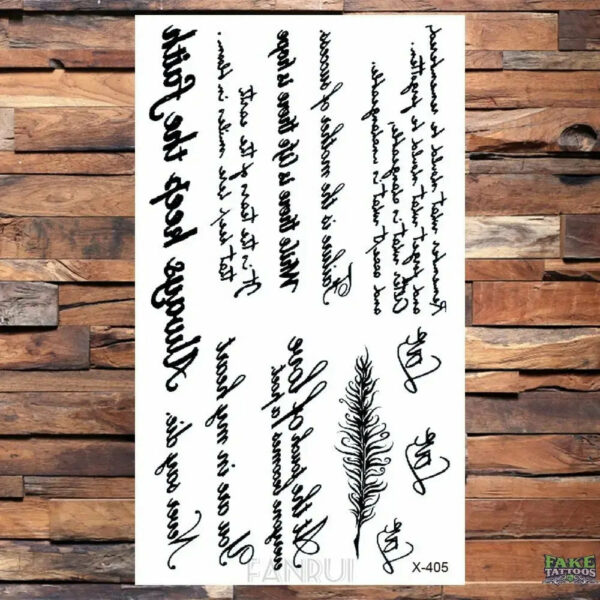 Always keep the Faith
It is the tears of the
smiles in bloom.
While there is life there is hope
Failure is the mother of success
Remember what should be remembered,
and forget what should be forgotten.
Alter what is changeable,
and accept what is
Never say die
You are in my heart
At the touch of love
everyone becomes a poet
Love
Love
Love
FANRUI
X-405
FAKE
TATTOOS